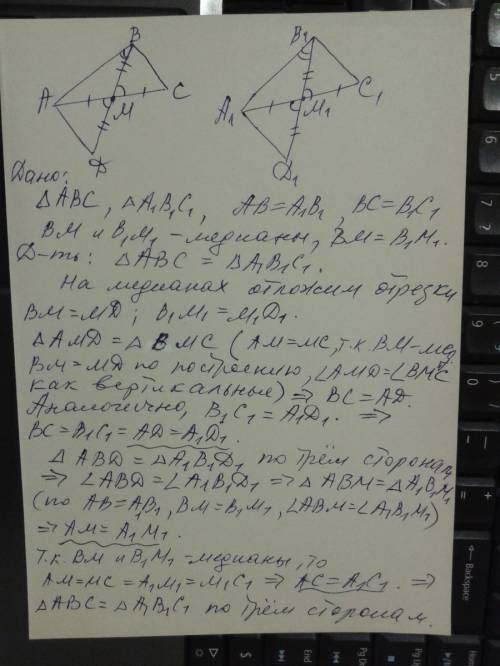 B B₁
A C A₁ C₁
M M₁
D D₁
Дано:
△ABC, △A₁B₁C₁, AB=A₁B₁, BC=B₁C₁
BM и B₁M₁ - медианы, BM=B₁M₁.
Д-ть: △ABC = △A₁B₁C₁.
На медианах отложим отрезки
BM=MD; B₁M₁=M₁D₁.
△AMD=△BMC (AM=MC, т.к. BM-мед,
BM=MD по построению, ∠AMD=∠BMC
как вертикальные) ⇒ BC=AD.
Аналогично, B₁C₁=A₁D₁. ⇒
BC=B₁C₁=AD=A₁D₁.
△ABD=△A₁B₁D₁ по трём сторонам
⇒ ∠ABD=∠A₁B₁D₁ ⇒ △ABM=△A₁B₁M₁
(по AB=AB₁, BM=B₁M₁, ∠ABM=∠A₁B₁M₁)
⇒ AM=A₁M₁.
Т.к. BM и B₁M₁ - медианы, то
AM=MC=A₁M₁=M₁C₁ ⇒ AC=A₁C₁. ⇒
△ABC=△A₁B₁C₁ по трём сторонам.
5
6
7
8
9
0
+
=
Backspace
Home
End
PgUp
PgDn